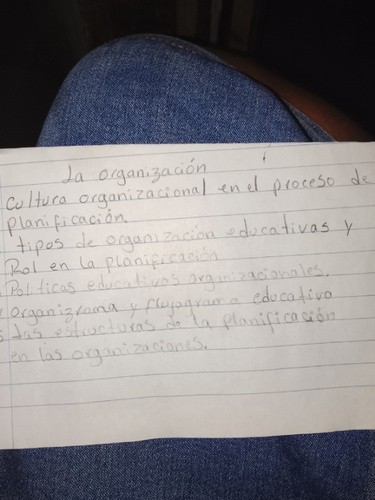 La organización
Cultura organizacional en el proceso de
planificación
tipos de organización educativas y
Rol en la planificación
Politicas educativas organizacionales.
organigrama y flujograma educativo
las estructuras de la planificación
en las organizaciones.